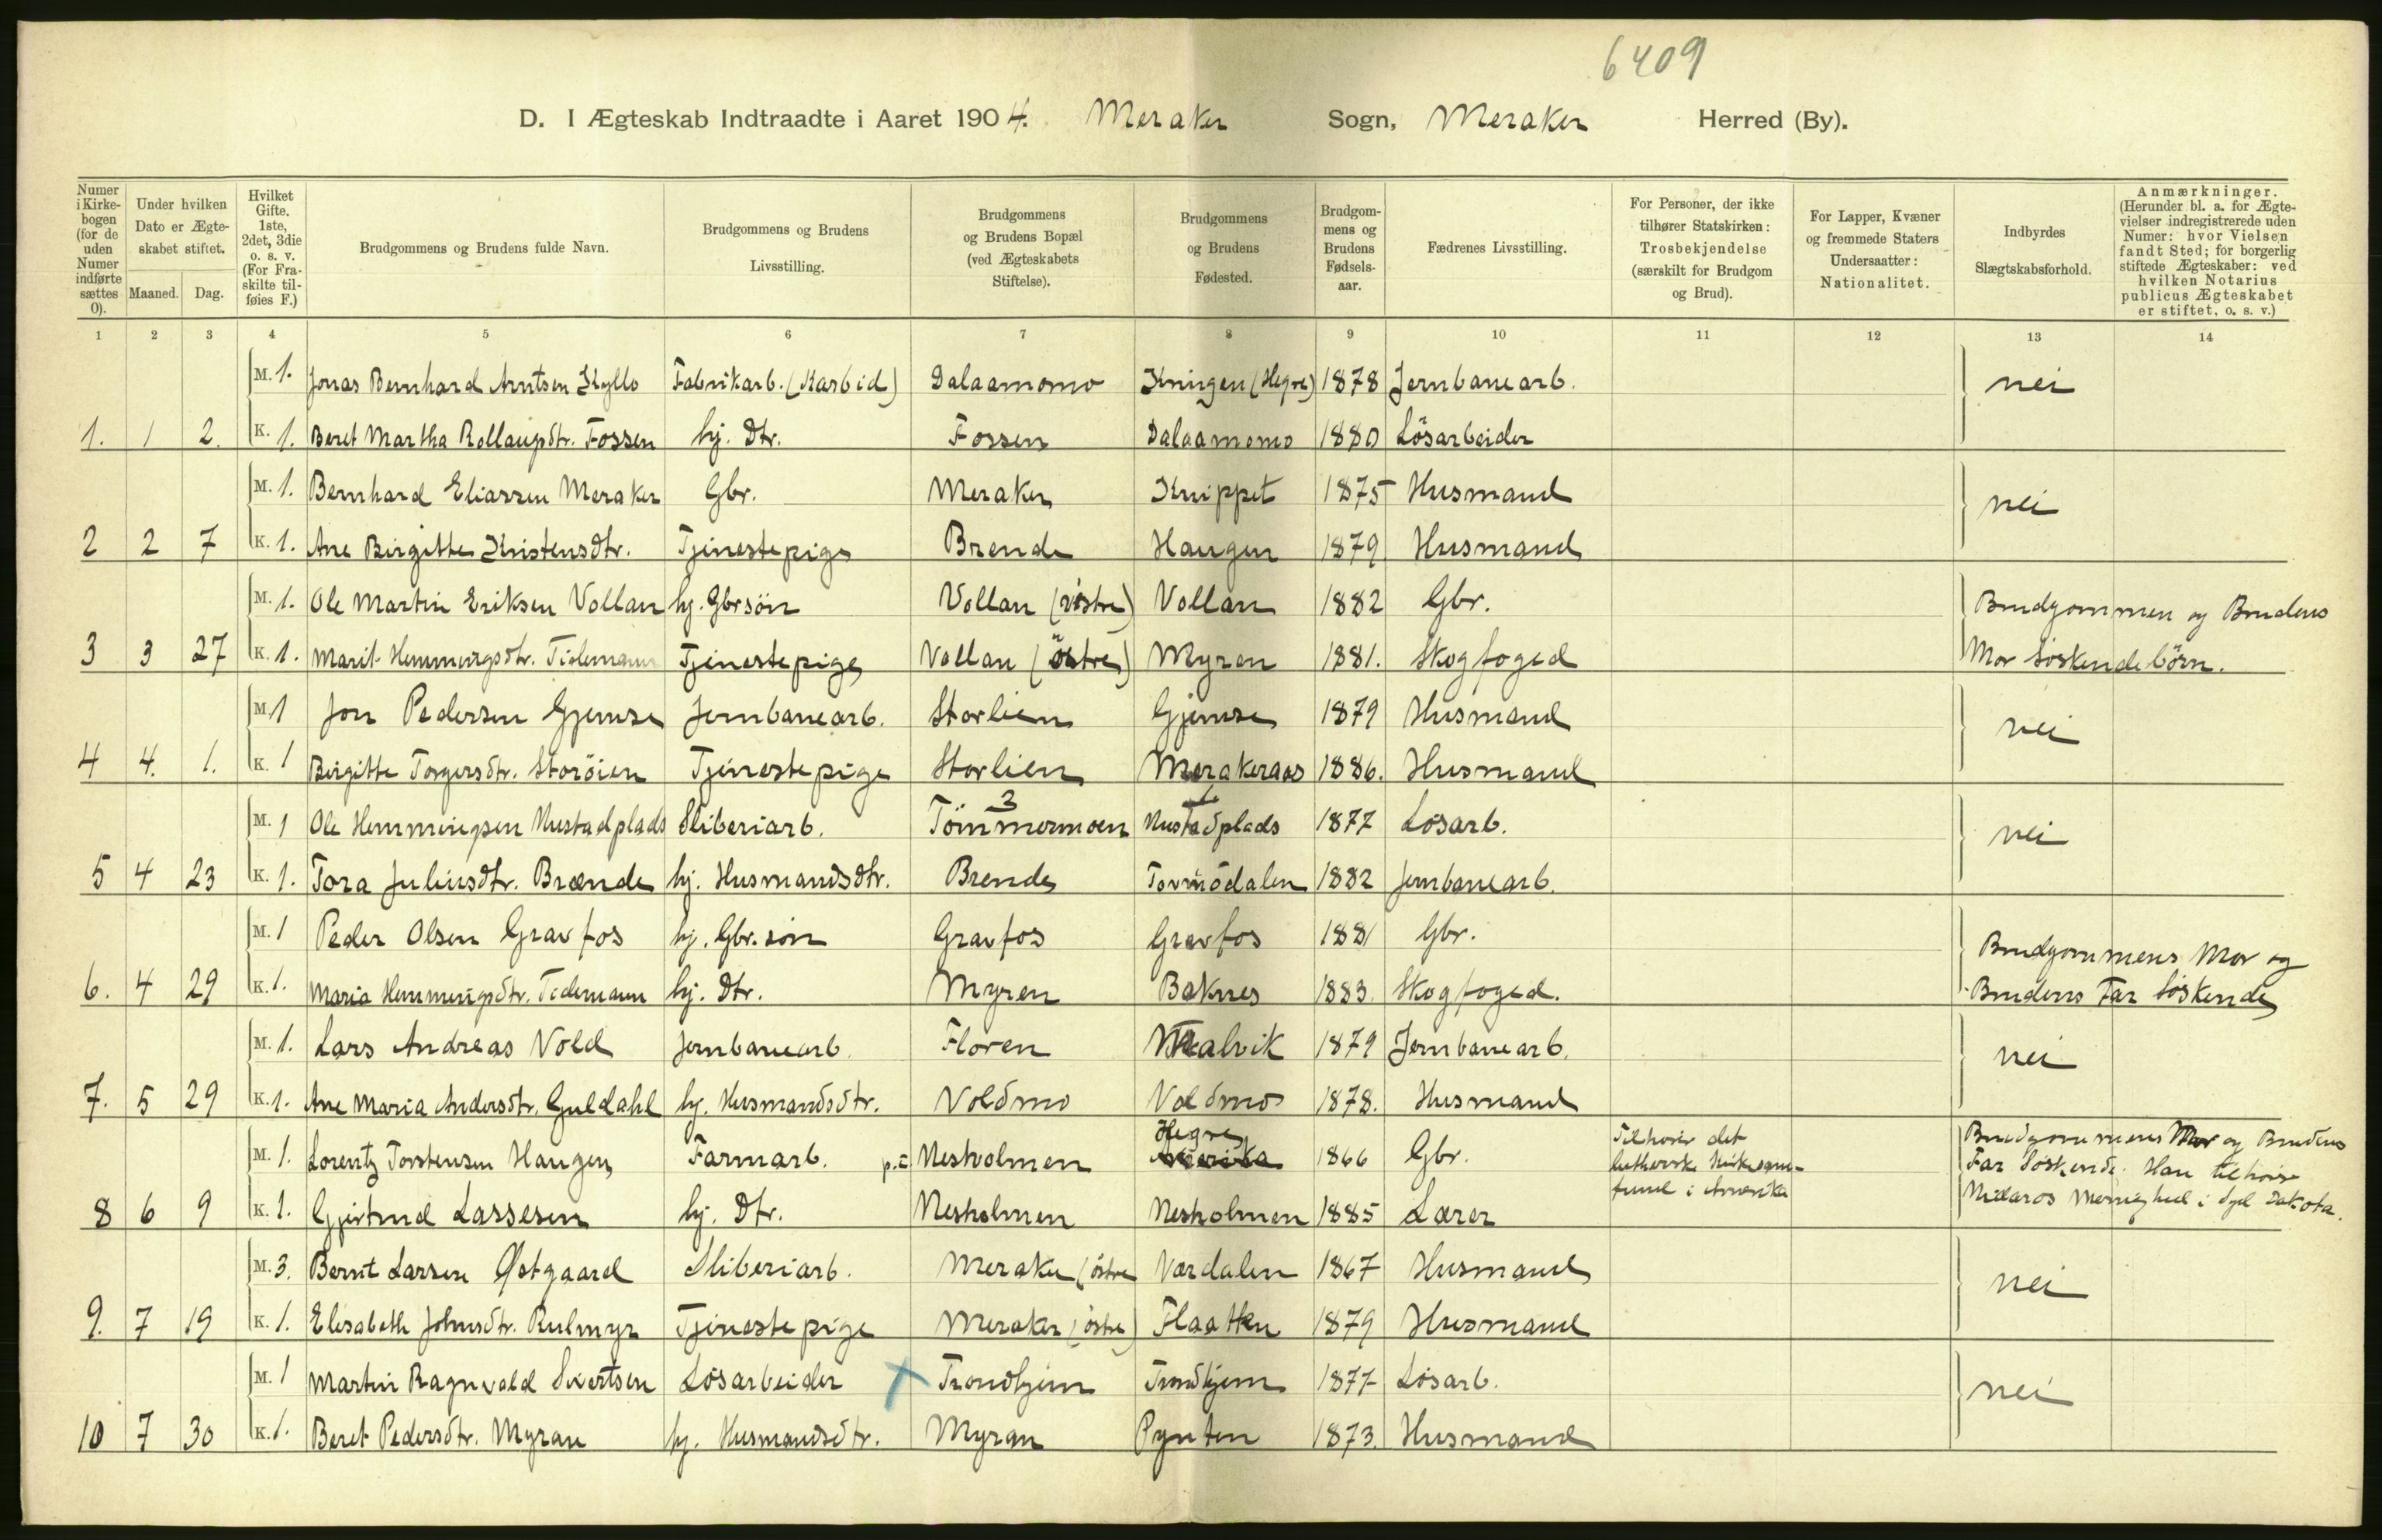 6409
D. I Ægteskab Indtraadte i Aaret 1904. Meraker Sogn, Meraker Herred (By).
Numer i Kirkebogen (for de uden Numer indførte sættes 0).
Under hvilken Dato er Ægteskabet stiftet.
Maaned. Dag.
Hvilket Gifte. 1ste, 2det, 3die o. s. v. (For Fraskilte tilføies F.)
Brudgommens og Brudens fulde Navn.
Brudgommens og Brudens Livsstilling.
Brudgommens og Brudens Bopæl (ved Ægteskabets Stiftelse).
Brudgommens og Brudens Fødested.
Brudgommens og Brudens Fødselsaar.
Fædrenes Livsstilling.
For Personer, der ikke tilhører Statskirken: Trosbekjendelse (særskilt for Brudgom og Brud).
For Lapper, Kvæner og fremmede Staters Undersaatter: Nationalitet.
Indbyrdes Slægtskabsforhold.
Anmærkninger. (Herunder bl. a. for Ægtevielser indregistrerede uden Numer: hvor Vielsen fandt Sted; for borgerlig stiftede Ægteskaber: ved hvilken Notarius publicus Ægteskabet er stiftet, o. s. v.)
1 2 3 4 5 6 7 8 9 10 11 12 13 14
M. 1. Jonas Bernhard Arntsen Kyllo Fabrikarb. (Karbid) Dalaamomo (Hegre) 1878 Jernbanearb. nei
1. 1 2. K. 1. Beret Martha Rollaugsdtr. Fossen hj. Dtr. Fossen Dalaamomo 1880 Lösarbeider
M. 1. Bernhard Eliassen Meraker Gbr. Meraker Knippet 1875 Husmand nei
2 2 7 K. 1. Ane Birgitte Kristensdtr. Tjenestepige Brende Haugen 1879 Husmand
M. 1. Ole Martin Eriksen Vollan hj. Gbrsön Vollan (östre) Vollan 1882 Gbr. Brudgommen og Brudens
3 3 27 K. 1. Marit Hemmingsdtr. Tidemann Tjenestepige Vollan (östre) Myren 1881. Skogfoged Mor Söskendebörn.
M. 1 Jon Pedersen Gjemse Jernbanearb. Storlien Gjemse 1879 Husmand nei
4 4. 1. K. 1 Birgitte Torgersdtr. Storöien Tjenestepige Storlien Merakeraas 1886. Husmand
M. 1 Ole Hemmingsen Nustadplads Sliberiarb. Tömmermoen Nustadplads 1877 Lösarb. nei
5 4 23 K. 1. Tora Juliusdtr. Brænde hj. Husmandsdtr. Brende Tormödalen 1882 Jernbanearb.
M. 1 Peder Olsen Gravfos hj. Gbr.sön Gravfos Gravfos 1881 Gbr. Brudgommens Mor og
6. 4 29 K. 1. Maria Hemmingsdtr. Tidemann hj. Dtr. Myren Baknes 1883. Skogfoged. Brudens Far Söskende
M. 1. Lars Andreas Vold Jernbanearb. Floren 1879 Jernbanearb. nei
7. 5 29 K. 1. Ane Maria Andersdtr. Guldahl hj. Husmandsdtr. Voldmo Voldmo 1878. Husmand
M. 1. Lorentz Torstensen Haugen Farmarb. p.t. Nesholmen Hegre Amerika 1866 Gbr. Tilhörer det lutherske Kirkesamfund i Amerika Brudgommens Mor og Brudens Far Söskende. Han tilhörer
8 6 9 K. 1. Gjertrud Lassesen hj. Dtr. Nesholmen Nesholmen 1885 Lærer Nidaros Menighed i Syd Dakota.
M. 3. Bernt Larsen Østgaard Sliberiarb. Meraker (östre Værdalen 1867 Husmand nei
9. 7 19 K. 1. Elisabeth Johnsdtr. Rulmyr Tjenestepige Meraker (östre) Flaatten 1879 Husmand
M. 1 Martin Ragnvald Sivertsen Lösarbeider Trondhjem Trondhjem 1877 Lösarb. nei
10 7 30 K. 1. Beret Pedersdtr. Myran hj. Husmandsdtr. Myran Pynten 1873. Husmand